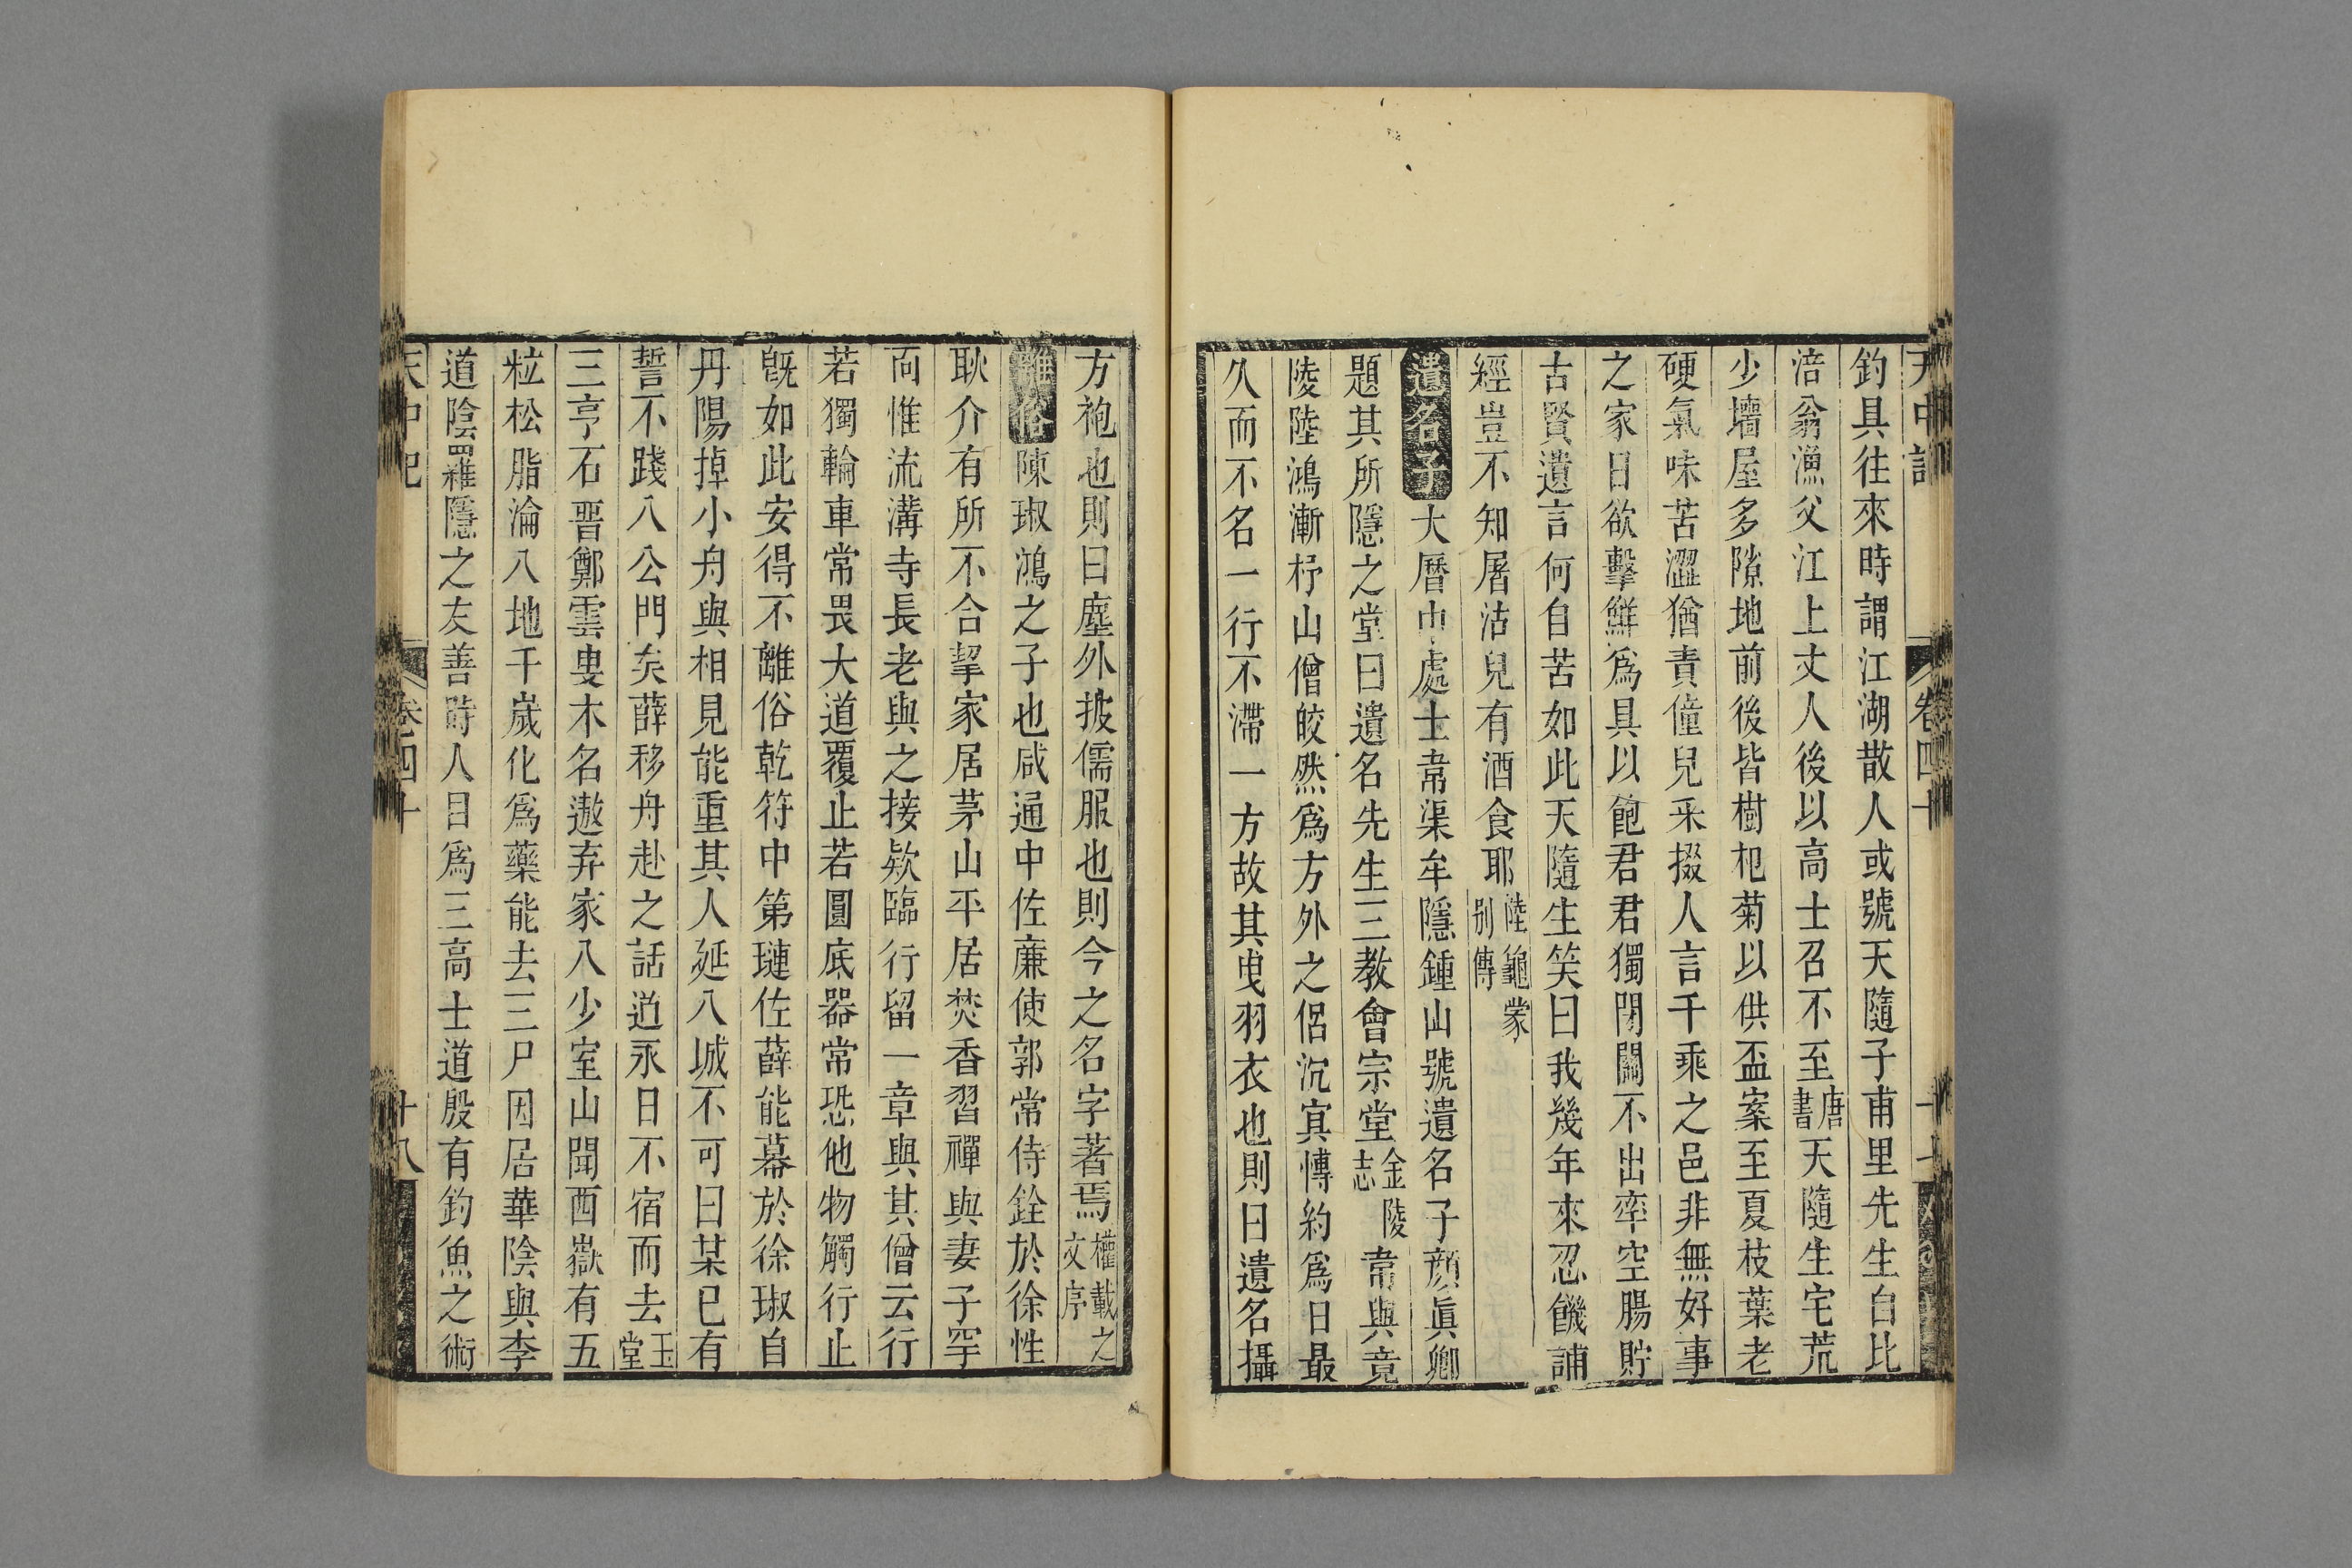 天中記
卷四十
釣具往來時謂江湖散人或號天隨子甫里先生自比
涪翁漁父江上丈人後以高士召不至唐書天隨生宅荒
少墻屋多隙地前後皆樹杞菊以供盃案至夏枝葉老
硬氣味苦澀猶責僮兒采掇人言千乘之邑非無好事
之家日欲擊鮮爲具以飽君君獨閉關不出率空腸貯
古賢遺言何自苦如此天隨生笑曰我幾年來忍饑誦
經豈不知屠沽兒有酒食耶陸龜蒙別傳
遺名子大曆中處士韋渠牟隱鍾山號遺名子顔眞卿
題其所隱之堂曰遺名先生三教會宗堂金陵志韋與竟
陵陸鴻漸杼山僧皎然爲方外之侶沉㝠愽約爲日最
久而不名一行不滯一方故其曵羽衣也則曰遺名攝
方袍也則曰塵外披儒服也則今之名字著焉權載之文序
離俗陳琡鴻之子也咸通中佐廉使郭常侍銓於徐性
耿介有所不合挈家居茅山平居焚香習禪與妻子罕
面惟流溝寺長老與之接欵臨行留一章與其僧云行
若獨輪車常畏大道覆止若圓底器常恐他物觸行止
旣如此安得不離俗乾符中第璉佐薛能幕於徐琡自
丹陽掉小舟與相見能重其人延入城不可曰某已有
誓不踐公門矣薛移舟赴之話道永日不宿而去玉堂
三亨石晋鄭雲叟木名遨弃家入少室山聞西嶽有五
粒松脂淪入地千歲化爲藥能去三尸因居華陰與李
道陰羅隱之友善時人目爲三高士道殷有釣魚之術
天中記
卷四十
十八